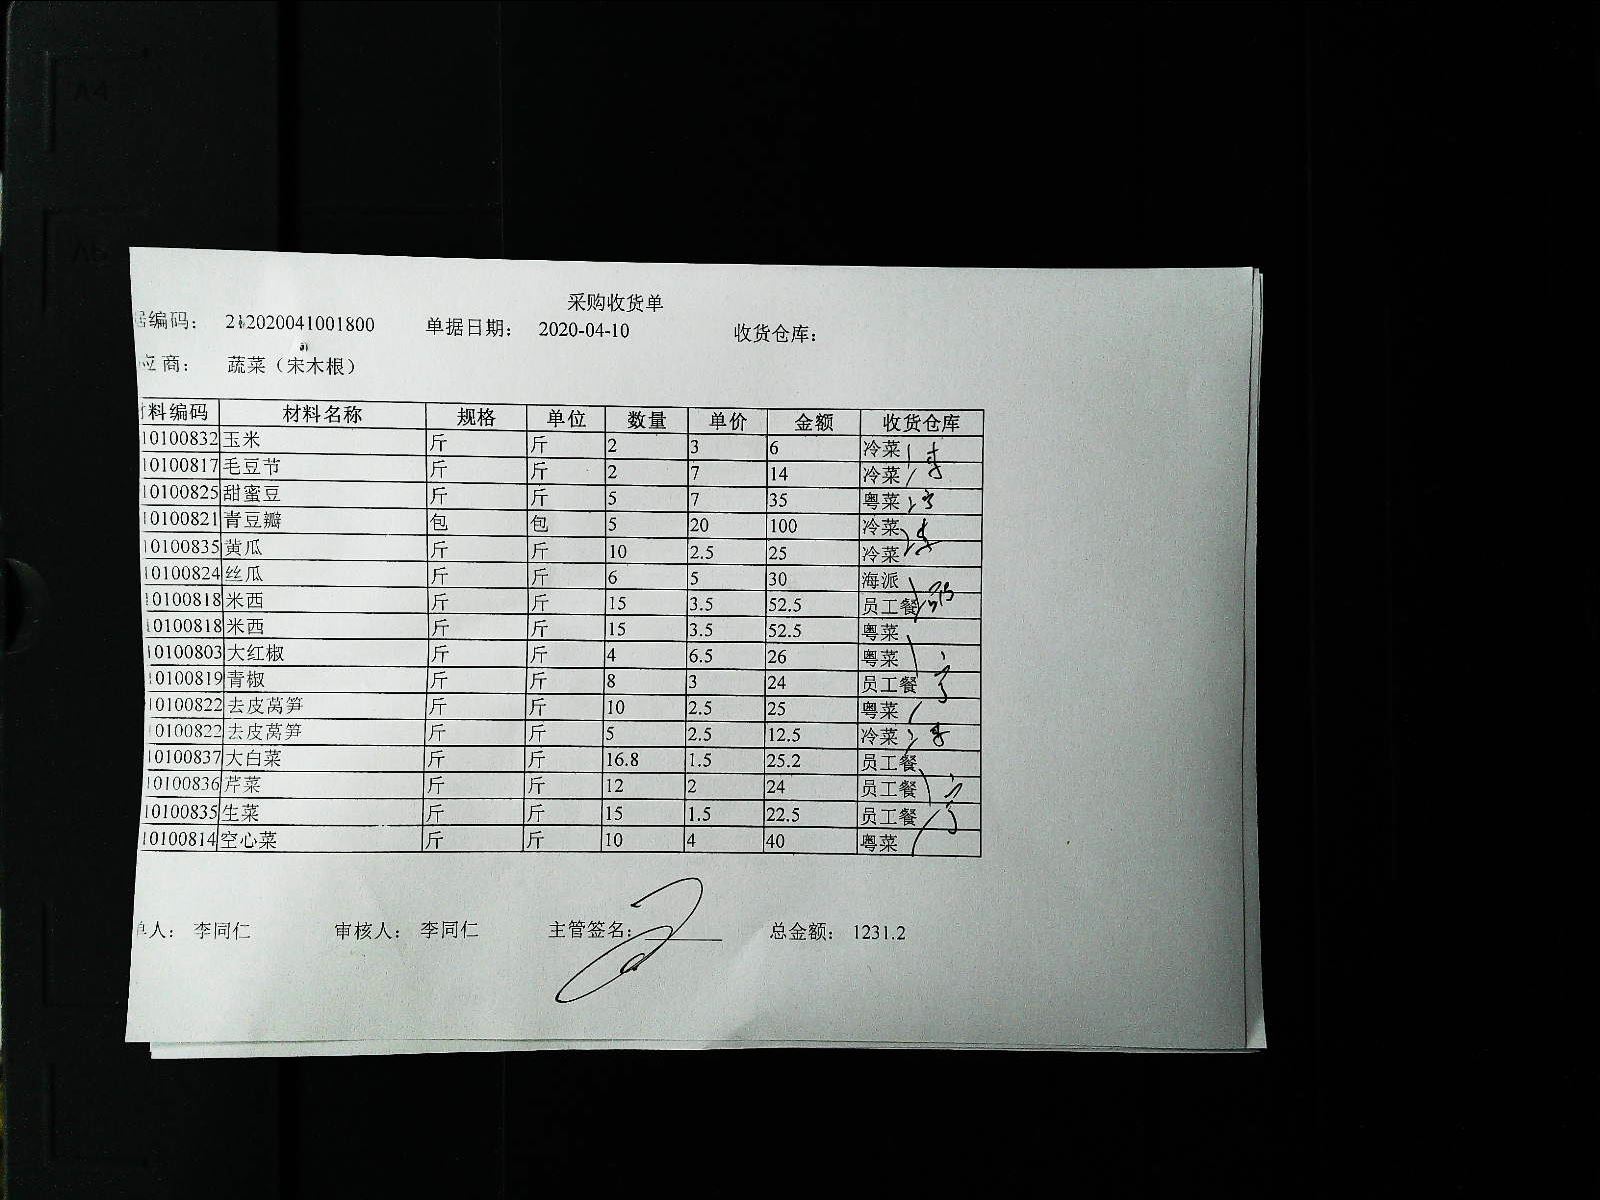 采购收货单
编码： 212020041001800 单据日期： 2020-04-10 收货仓库：
应商： 蔬菜（宋木根）
料编码 材料名称 规格 单位 数量 单价 金额 收货仓库
10100832 玉米 斤 斤 2 3 6 冷菜
10100817 毛豆节 斤 斤 2 7 14 冷菜
10100825 甜蜜豆 斤 斤 5 7 35 粤菜
10100821 青豆瓣 包 包 5 20 100 冷菜
10100835 黄瓜 斤 斤 10 2.5 25 冷菜
10100824 丝瓜 斤 斤 6 5 30 海派
10100818 米西 斤 斤 15 3.5 52.5 员工餐
10100818 米西 斤 斤 15 3.5 52.5 粤菜
10100803 大红椒 斤 斤 4 6.5 26 粤菜
10100819 青椒 斤 斤 8 3 24 员工餐
10100822 去皮莴笋 斤 斤 10 2.5 25 粤菜
10100822 去皮莴笋 斤 斤 5 2.5 12.5 冷菜
10100837 大白菜 斤 斤 16.8 1.5 25.2 员工餐
10100836 芹菜 斤 斤 12 2 24 员工餐
10100835 生菜 斤 斤 15 1.5 22.5 员工餐
10100814 空心菜 斤 斤 10 4 40 粤菜
单人： 李同仁 审核人： 李同仁 主管签名： 总金额： 1231.2